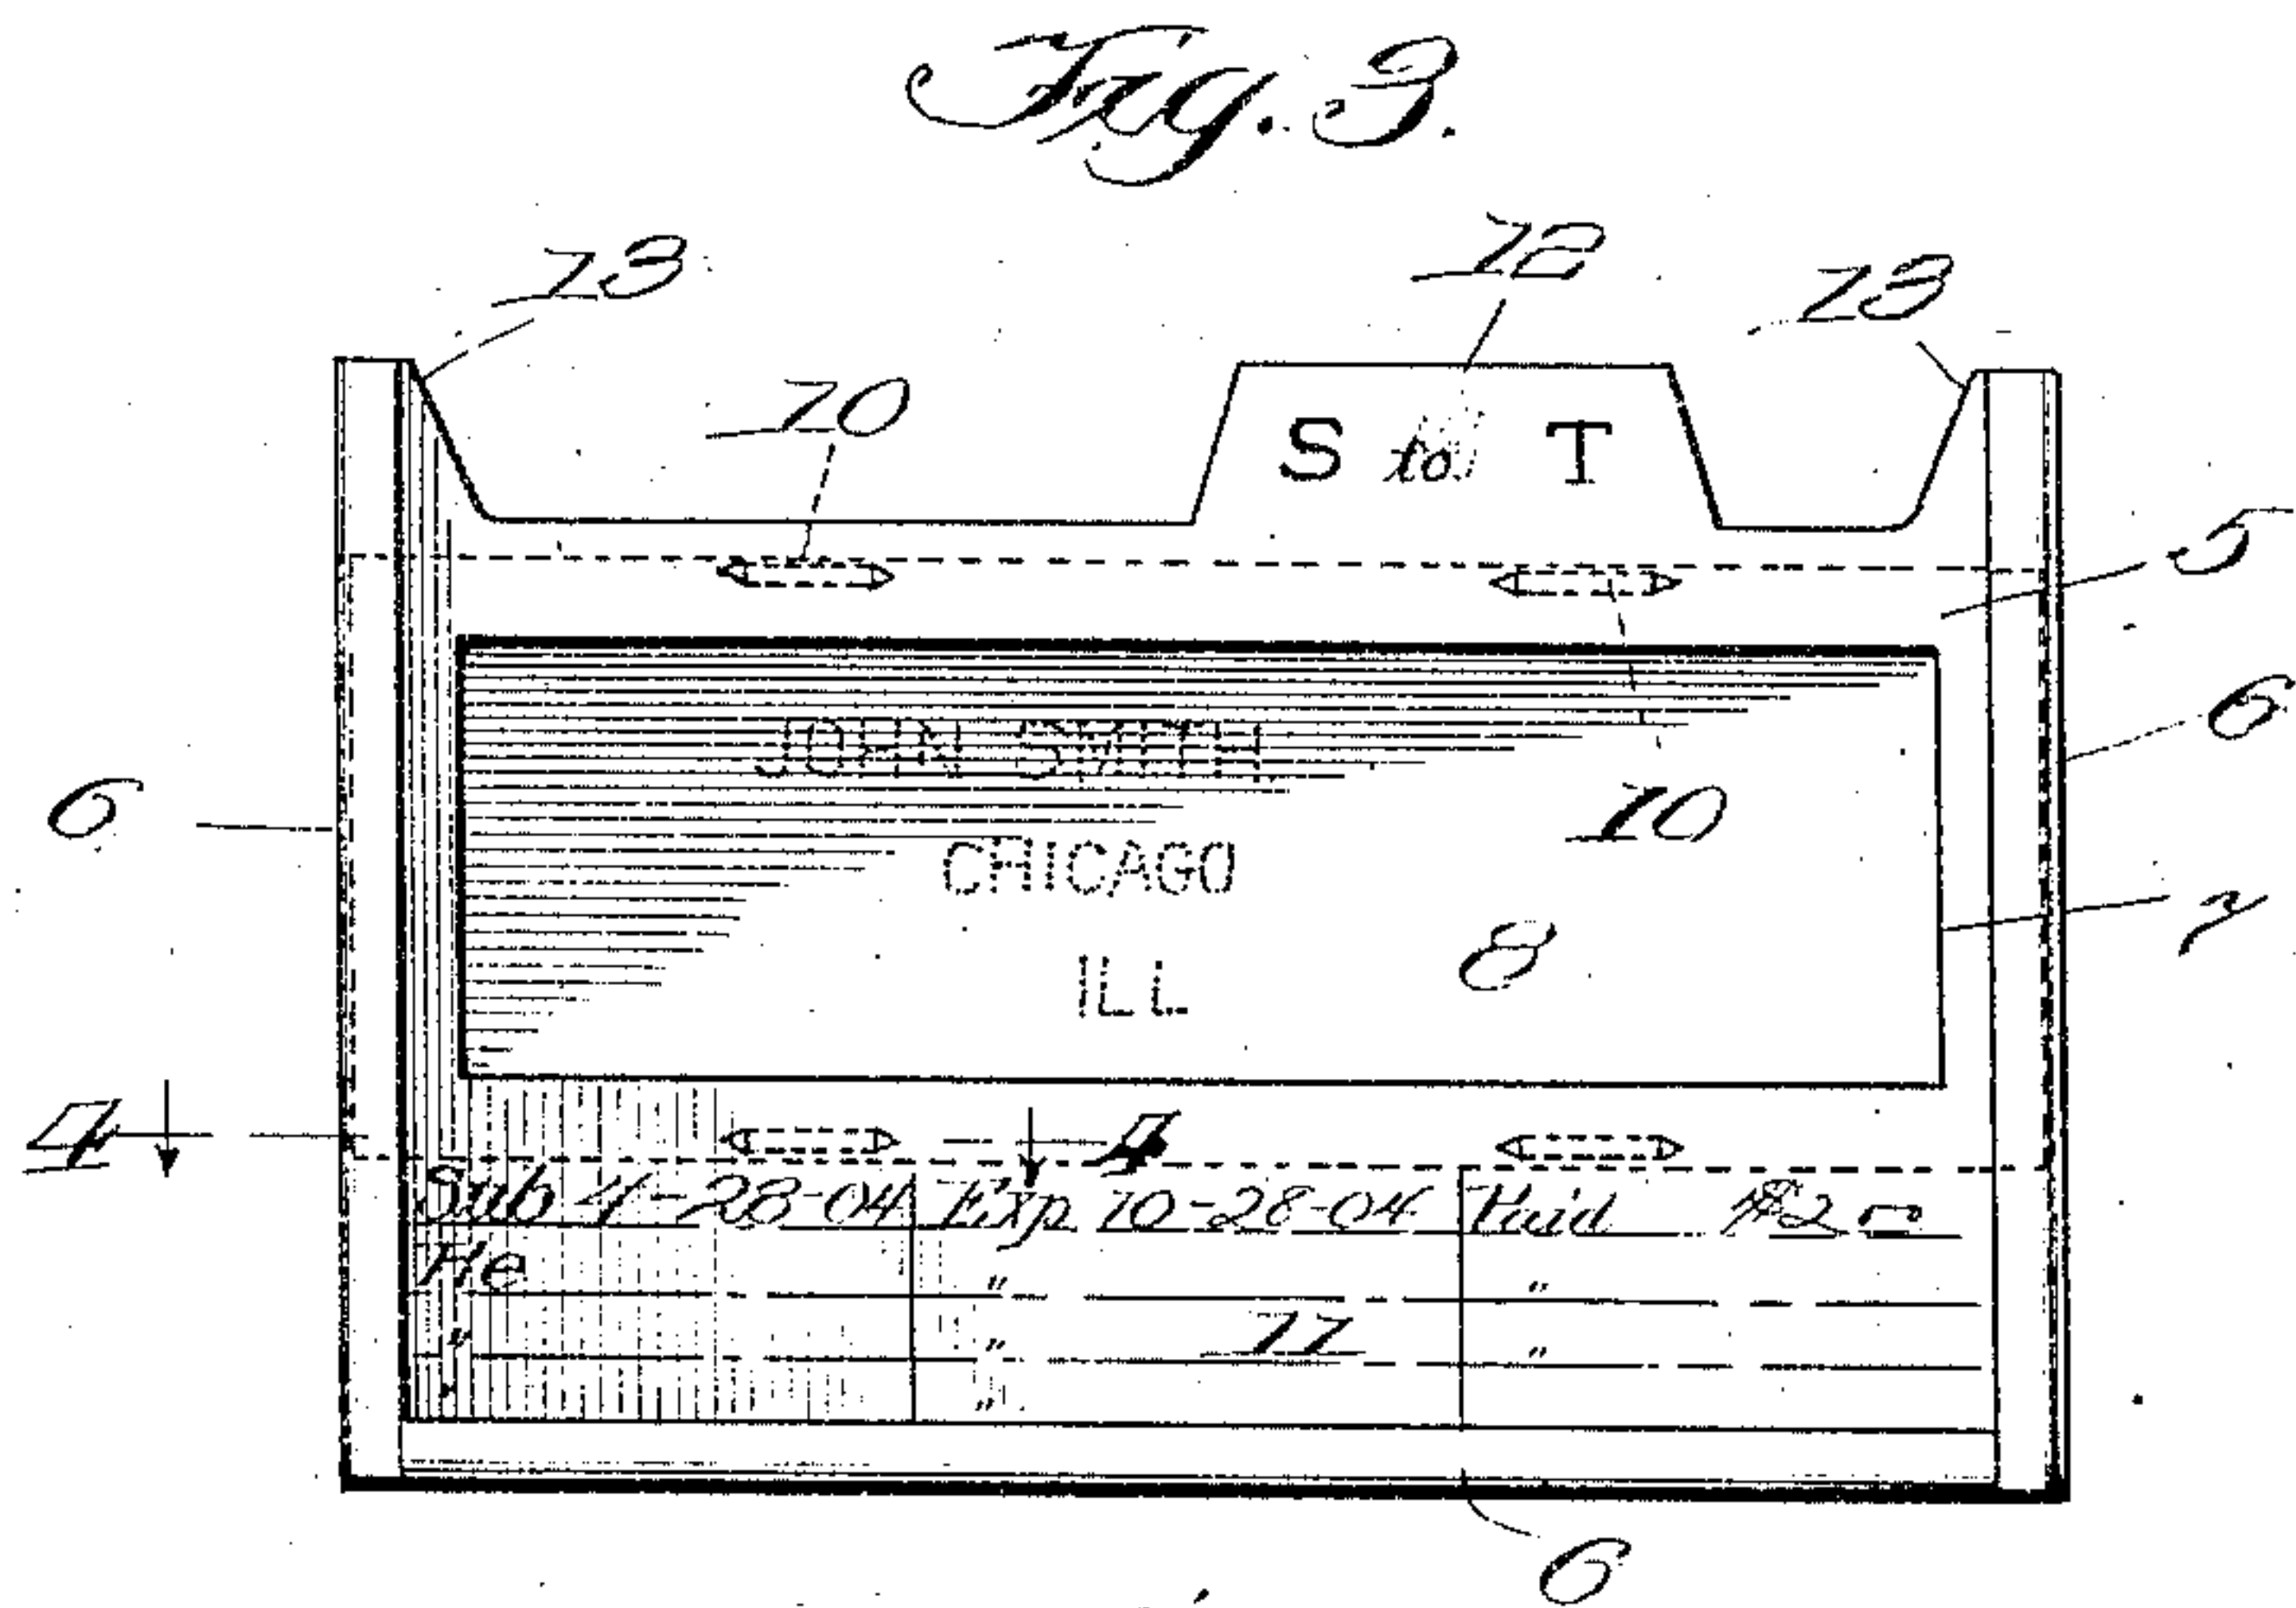 Fig. 3.
13 12 13
10
S to T
5
6
JOHN SMITH
10
6
CHICAGO
7
8
ILL
4 4
Sub 4-28-04 Exp 10-28-04 Paid $2
" "
11
" "
"
6